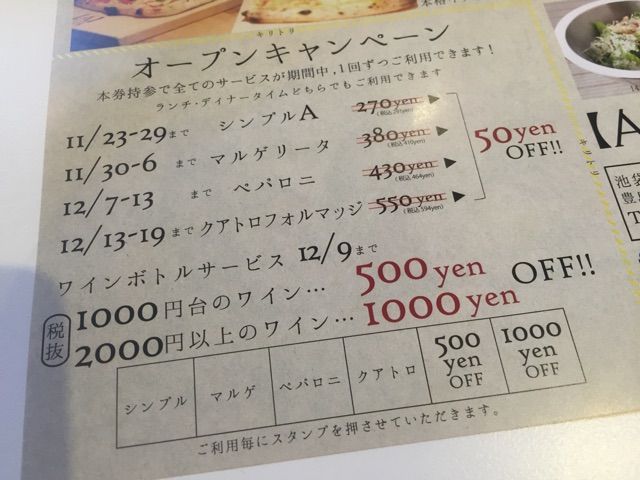 本格
キリトリ
オープンキャンペーン
本券持参で全てのサービスが期間中,1回ずつご利用できます!
ランチ・ディナータイムどちらでもご利用できます
11/23-29まで シンプルA 270yen
11/30-6 まで マルゲリータ 380yen (税込410yen)
12/7-13 まで ペパロニ 430yen (税込464yen)
12/13-19まで クアトロフォルマッジ 550yen (税込594yen)
50yen
OFF!!
キリトリ
ワインボトルサービス 12/9まで
税抜
1000円台のワイン… 500yen
2000円以上のワイン… 1000yen
OFF!!
シンプル マルゲ ペパロニ クアトロ 500 yen OFF 1000 yen OFF
ご利用毎にスタンプを押させていただきます。
池袋